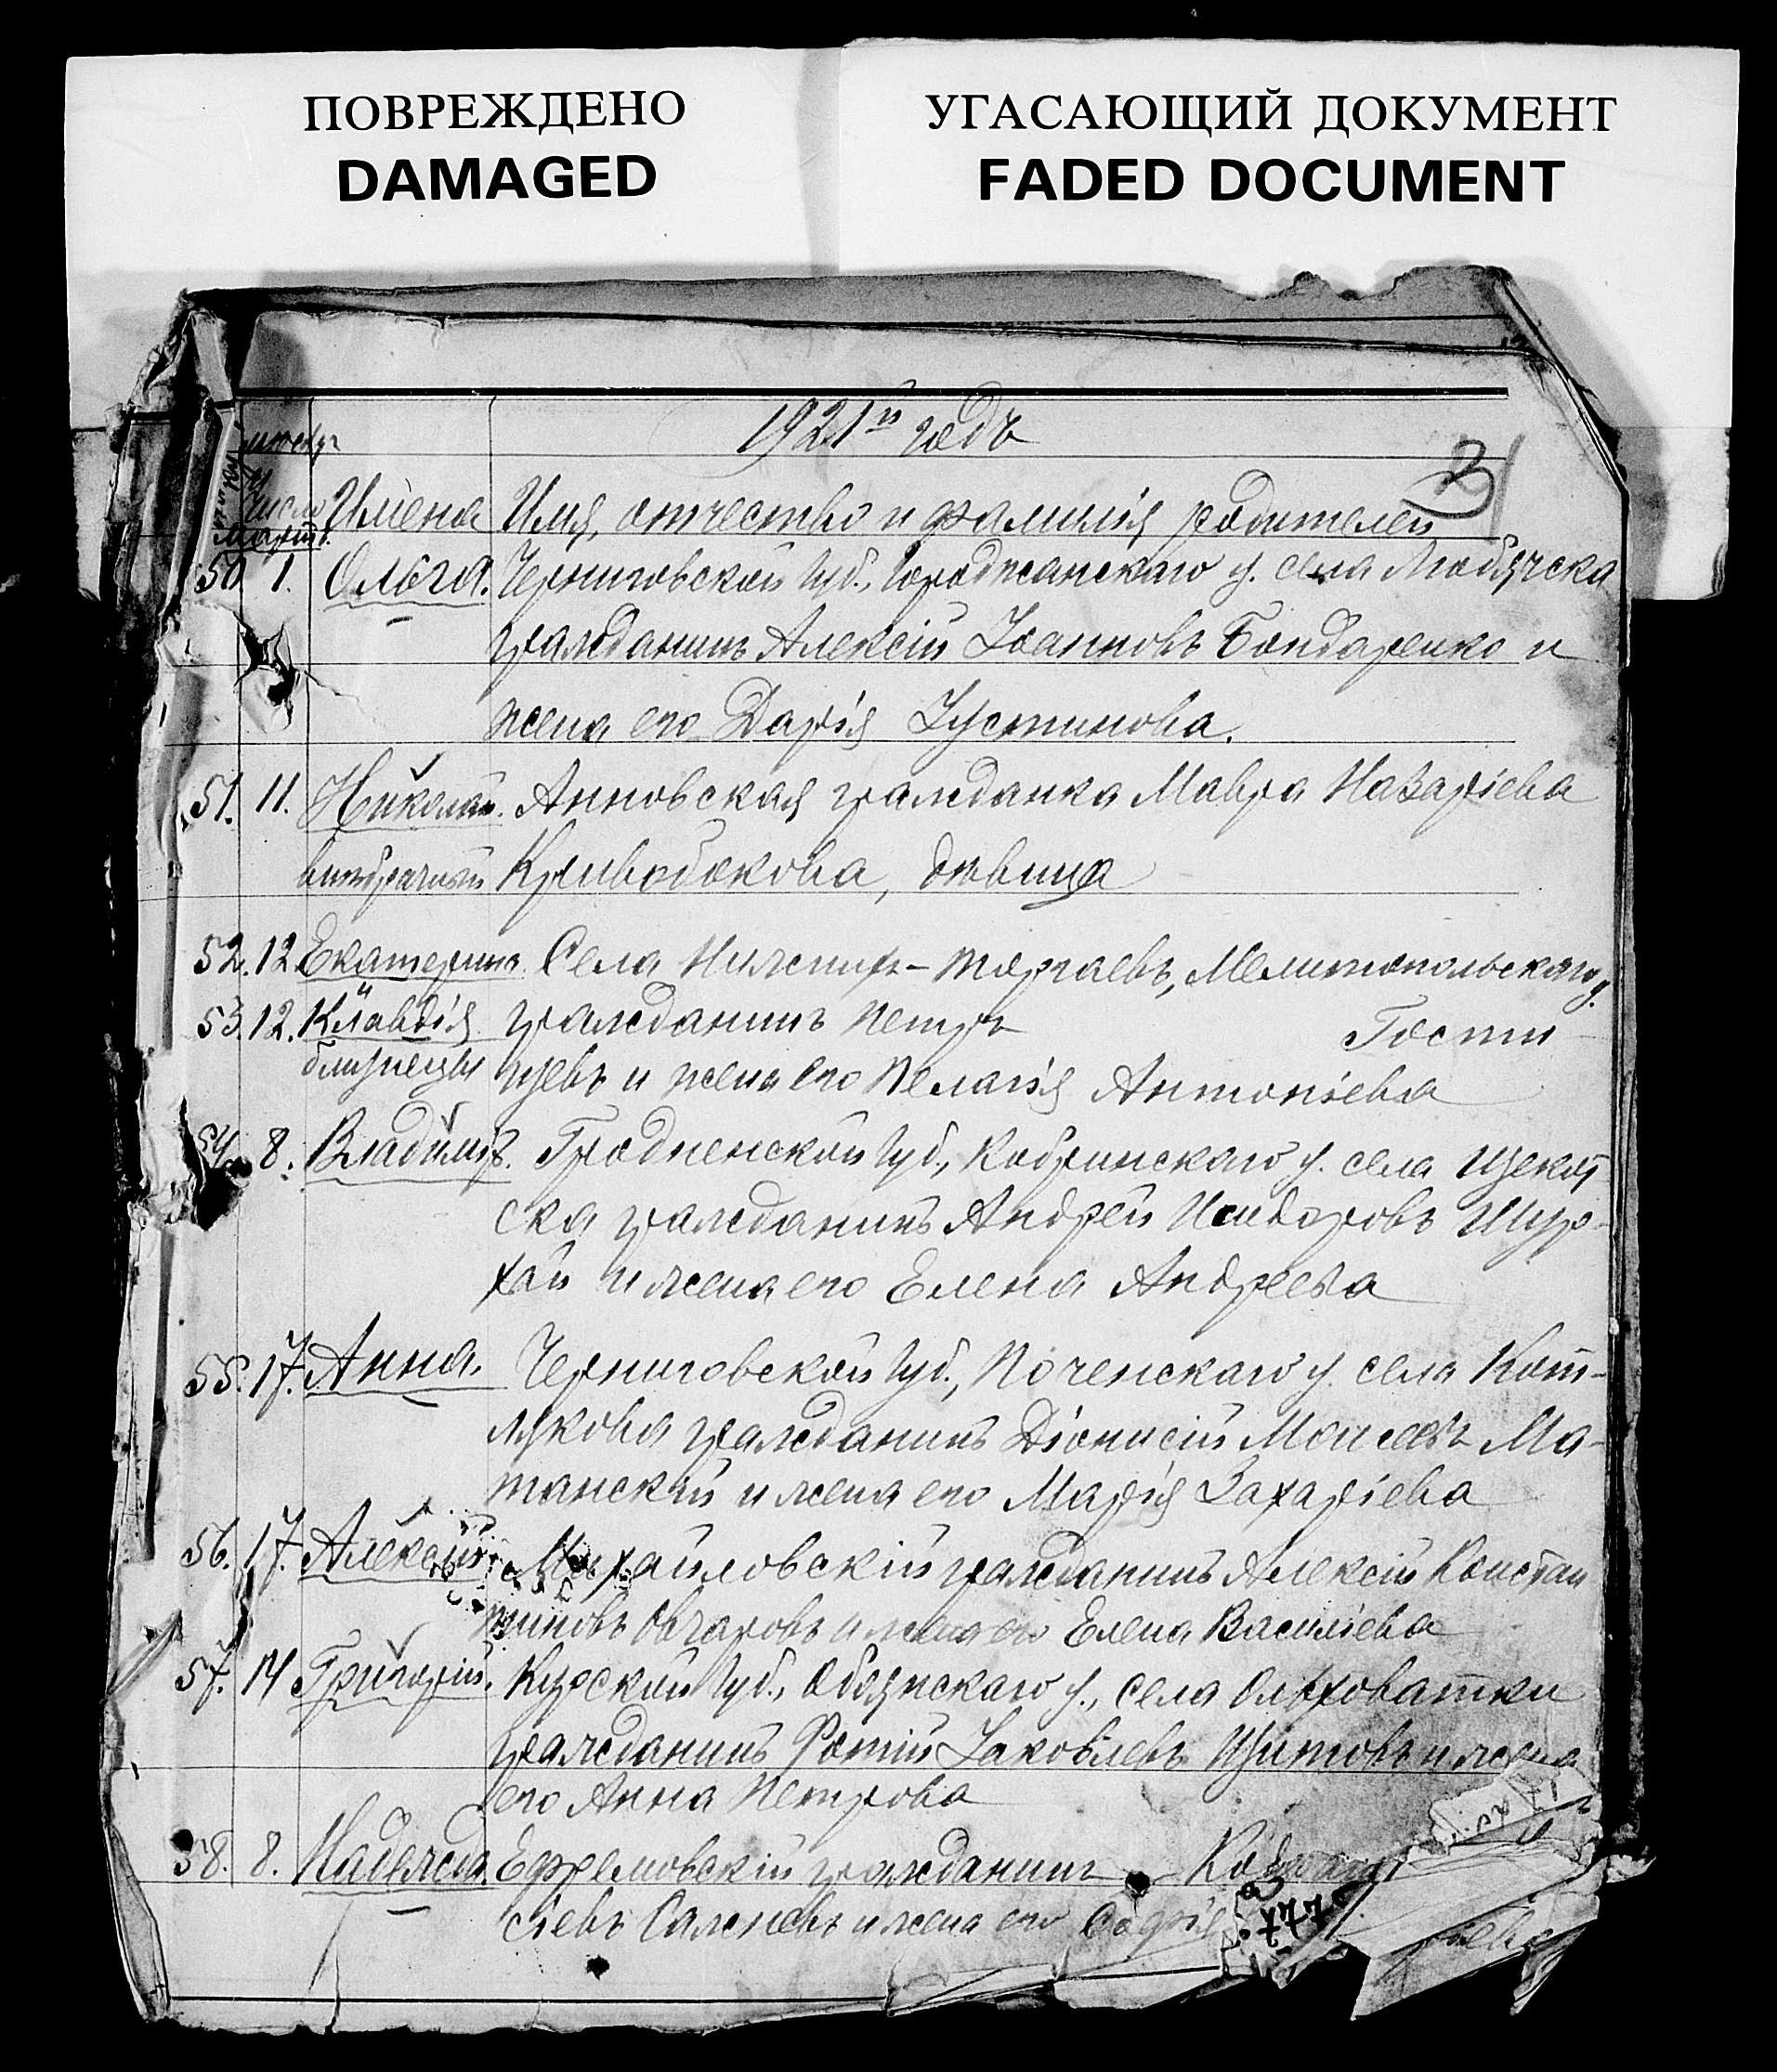 ПОВРЕЖДЕНО
DAMAGED
УГАСАЮЩИЙ ДОКУМЕНТ
FADED DOCUMENT
1921й годъ
31
Число Имена Имя, отчество и фамилія родителей
Мартъ.
50 1. Ольга. Черниговской губ., Городнянскаго у. села
гражданинъ Алексій Іоанновъ Бондаренко и
жена его Дарія Іустинова.
51. 11. Николай. Анновская гражданка Мавра Назаріева
внѣбрачный Кривобокова, дѣвица
52. 12. Екатерина Села Нижнихъ-Торгаевъ, Мелитопольскаго у.
и
53. 12. Клавдія гражданинъ Петръ Гости
близнецы цевъ и жена его Пелагія Антоніева
54. 8. Владиміръ. Гродненской губ., Кобринскаго у. села
ска гражданинъ Андрей Исидоровъ Шур-
хай и жена его Елена Андреева
55. 17. Анна. Черниговской губ., Поченскаго у. села Кот-
лякова гражданинъ Діонисій Моисеевъ Ма-
танскій и жена его Марія Захаріева
56. 17. Алексій Михайловскій гражданинъ Алексій Констан
тиновъ Овчаровъ и жена его Елена Василіева
57. 14 Григорій. Курской губ., Обоянскаго у., села Ольховатки
гражданинъ Фотій Іаковлевъ Щитовъ и жена
его Анна Петрова
58. 8. Надежда. Ефремовскій гражданинъ
сіевъ и жена его Софія